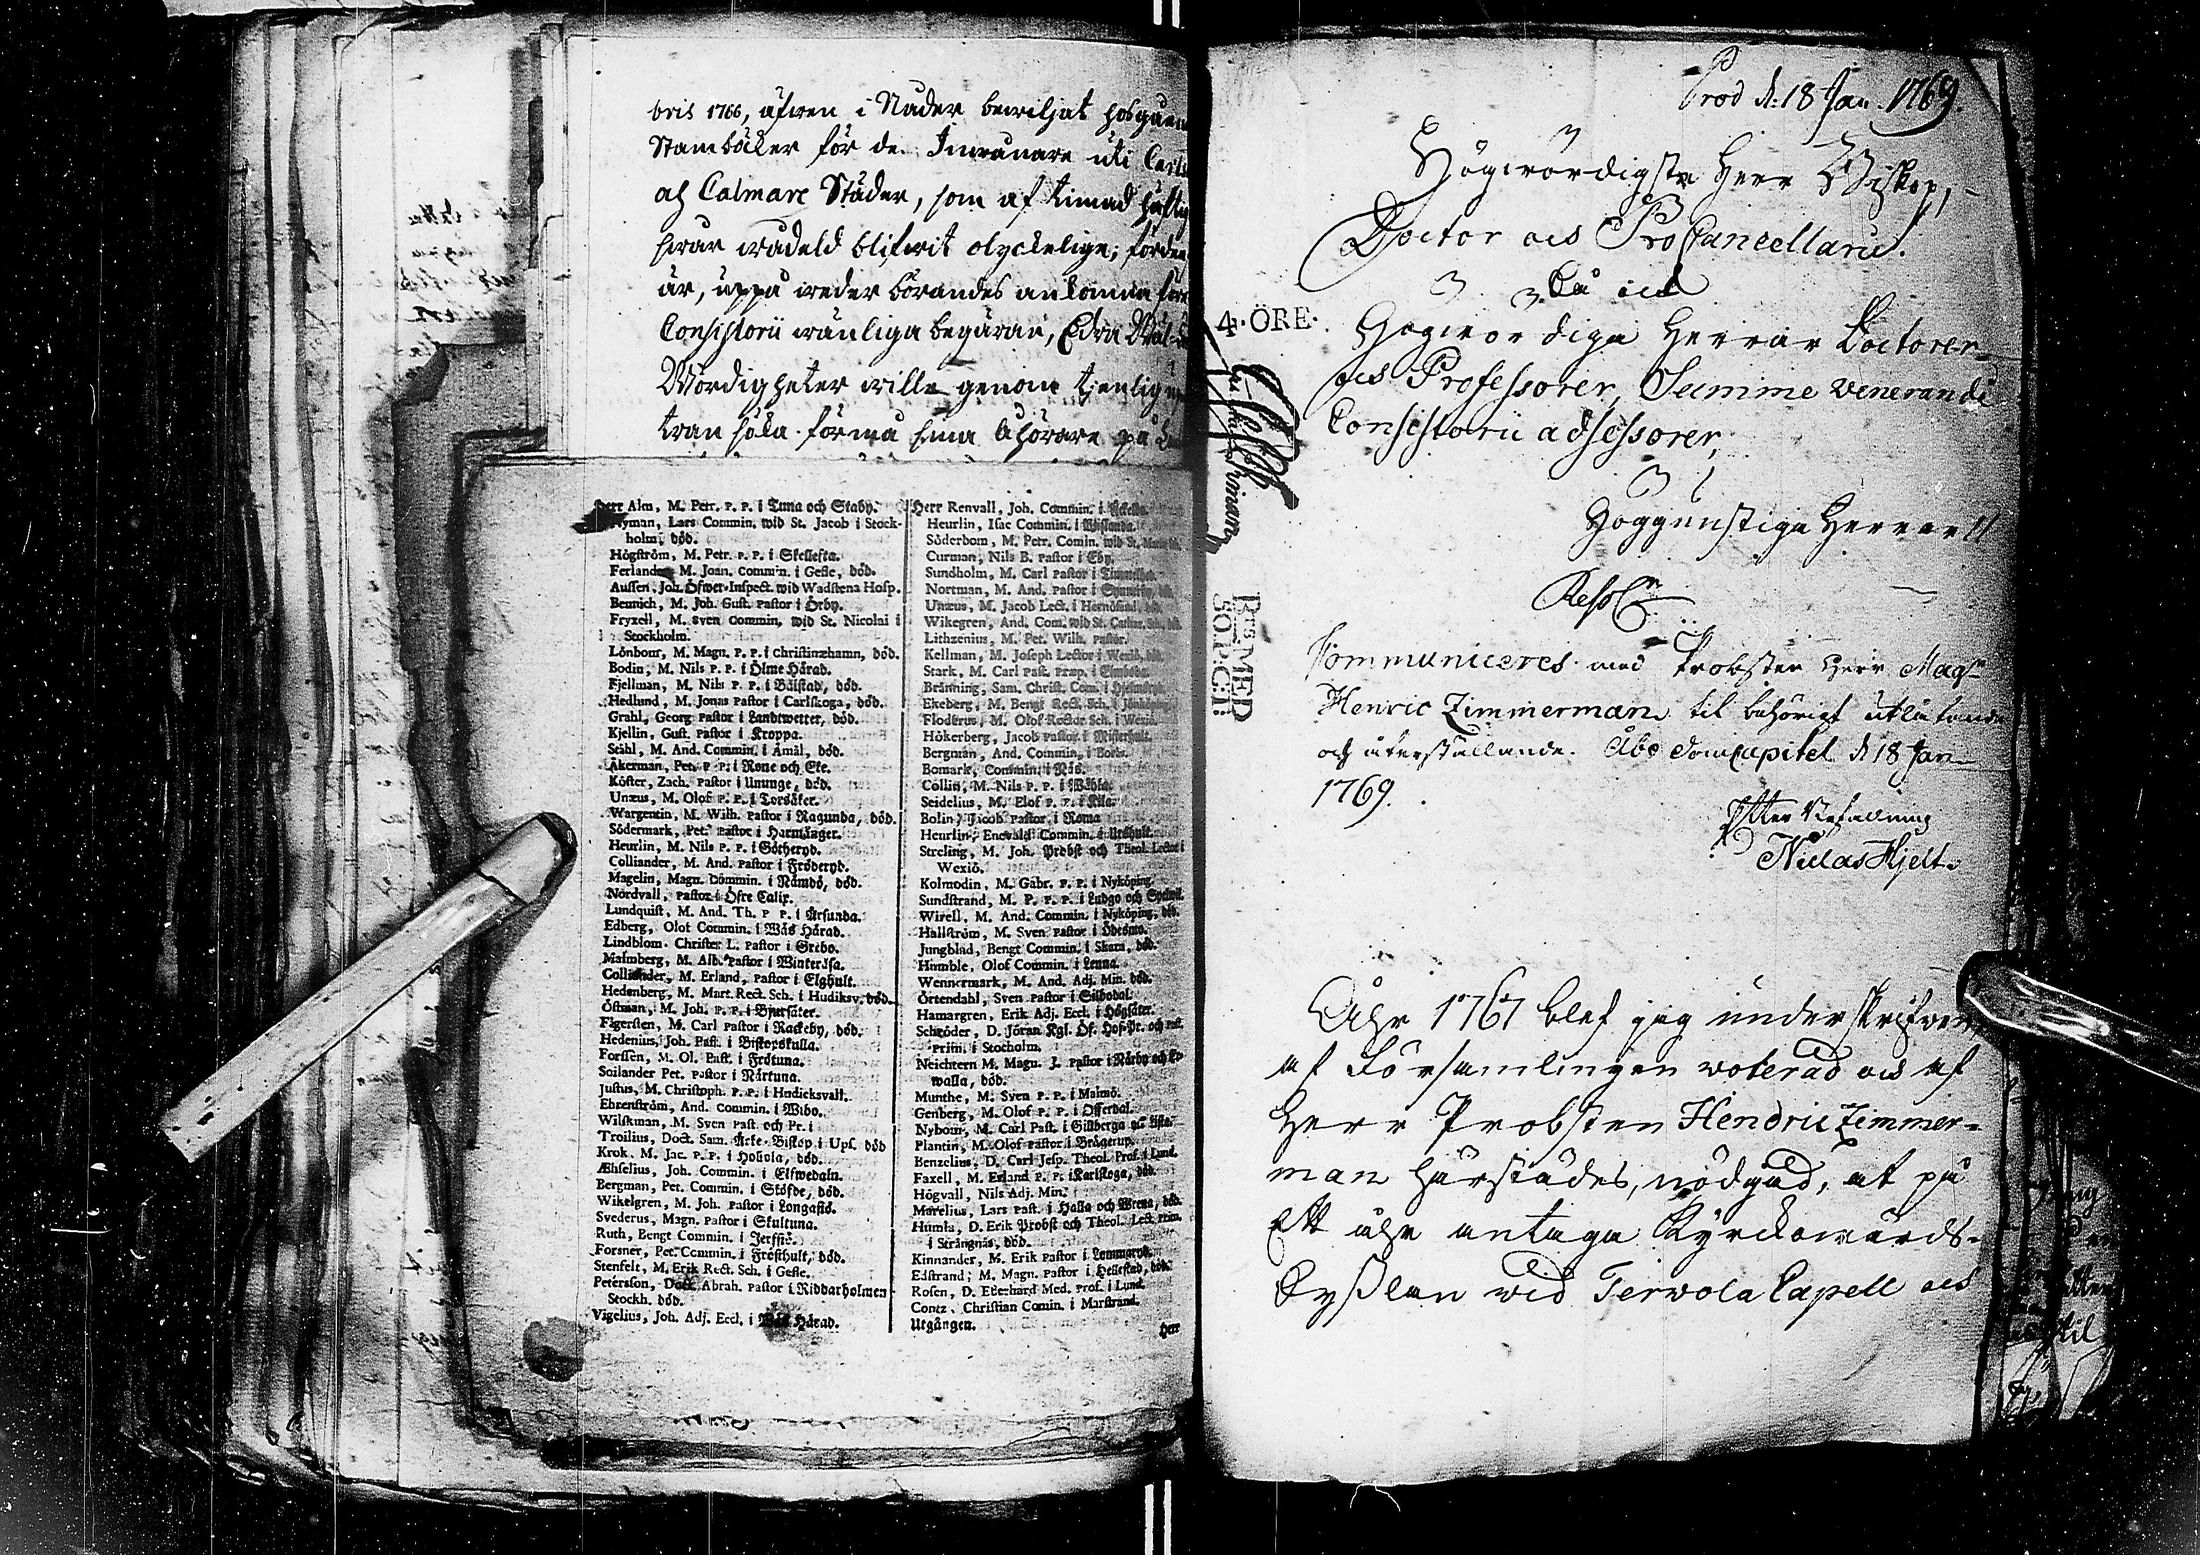 bris 1766, äfwen i Nåder bewiljat
Stamböcker för de Inwånare uti
och Calmare Städer, som af timad
swår wådeld blifwit olyckelige; 
är, uppå
Consistorii wänliga begäran, Edra
Wördigheter wille genom tjenlig
tran söka förmå sina åhörare på
Herr Alm, M. Petr. P. P. i Tuna och Staby.
Nyman, Lars Commin. wid St. Jacob i Stock-
holm, död.
Högström, M. Petr. P. P. i Skellefta.
Ferlander M. Joan. Commin. i Gefle, död.
Aussen, Joh. Öfwer-Inspect. wid Wadstena Hosp.
Bennich, M. Joh. Gust. Pastor i Örby.
Fryxell, M. Sven Commin. wid St. Nicolai i
Stockholm.
Lönbom, M. Magn. P. P. i Christinæhamn, död.
Bodin, M. Nils P. P. i Ölme Härad.
Fjellman, M. Nils P. P. i Bålstad, död.
Hedlund, M. Jonas Pastor i Carlskoga, död.
Grahl, Georg Pastor i Landtwetter, död.
Kjellin, Gust. Pastor i Kroppa.
Ståhl, M. And. Commin. i Åmål, död.
Åkerman, Pet. P. P. i Rone och Eke.
Köster, Zach. Pastor i Ununge, död.
Unæus, M. Olof P. P. i Torsåker.
Wargentin, M. Wilh. Pastor i Ragunda, död.
Södermark, Pet. Pastor i Harmånger.
Heurlin, M. Nils P. P. i Götheryd.
Colliander, M. And. Pastor i Fröderyd.
Magelin, Magn. Commin. i Nämdö, död.
Nordvall, Pastor i Öfre Calix.
Lundquist, M. And. Th. P P. i Årsunda.
Edberg, Olof Commin. i Wås Härad.
Lindblom. Christer L. Pastor i Grebo.
Malmberg, M. Alb. Pastor i Winteråsa.
Colliander, M. Erland, Pastor i Elghult.
Hedenberg, M. Mart. Rect. Sch. i Hudiksv. död.
Östman, M. Joh. P. P. i Bjursåker.
Fägersten, M. Carl Pastor i Rackeby, död.
Hedenius, Joh. Past. i Biskopskulla.
Forssen, M. Ol. Past. i Frötuna.
Soilander Pet. Pastor i Närtuna.
Justus, M. Christoph. P. P. i Hudicksvall.
Ehrenström, And. Commin. i Wibo.
Wilskman, M. Sven Past. och Pr. i
Troilius, Doct. Sam. Ärke-Biskop i Ups. död
Krok. M. Jac. P. P. i Hokola, död.
Æhfelius, Joh. Commin. i Elfwedaln.
Bergman, Pet. Commin. i Sköfde, död.
Wikelgren, M. Joh. Pastor i Longasjö.
Svederus, Magn. Pastor i Skultuna.
Ruth, Bengt Commin. i Jerfsö.
Forsner, Pet. Commin. i Frösthult, död.
Stenfelt, M. Erik Rect. Sch. i Gefle.
Petersson, Doct Abrah. Pastor i Riddarholmen
Stockh. död.
Vigelius, Joh. Adj. Eccl. i Härad.
Herr Renvall, Joh. Commin. i
Heurlin, Isac Commin. i Wislanda.
Söderbom, M. Petr. Comin. wid St.
Curman, Nils B. Pastor i Eby.
Sundholm, M. Carl Pastor i
Nortman, M. And. Pastor i
Unæus, M. Jacob Lect. i Hernösand,
Wikegren, And. Com. wid St. Cathar.
Lithzenius, M. Pet. Wilh. Pastor.
Kellman, M. Joseph Lector i Wexiö,
Stark, M. Carl Past. Præp. i
Bränning, Sam. Christ. Com. i
Ekeberg, M. Bengt Rect. Sch. i Jönköping,
Floderus, M. Olof Rector Sch. i Wexiö.
Hökerberg, Jacob Pastor i Misterhult.
Bergman, And. Commin. i
Bomark, Commin. i Näs.
Collin, M. Nils P. P. i
Seidelius, M. Elof P. P. i Kila.
Bolin, Jacob Pastor i Roma
Heurlin, Enevald Commin. i
Streling, M. Joh. Probst och Theol. Lector i
Wexiö.
Kolmodin, M. Gabr. P. P. i Nyköping.
Sundstrand, M. P. P. P. i Ludgo och
Wirell, M. And. Commin. i Nyköping, död.
Hallström, M. Sven Pastor i
Jungblad, Bengt Commin. i Skara, död.
Humble, Olof Commin. i Lenna.
Wennermark, M. And. Adj. Min. död.
Örtendahl, Sven Pastor i Silbodal.
Hamargren, Erik Adj. Eccl. i Högsäter.
Schröder, D. Jöran Kgl. Öf. Hof-Pr. och
Prim. i Stocholm.
Neichtern M. Magn. J. Pastor i Närby och
walla, död.
Munthe, M. Sven P. P. i Malmö.
Genberg, M. Olof P. P. i Offerdal.
Nybom, M. Carl Past. i Gillberga
Plantin, M. Olof Pastor i Brågerup.
Benzelius, D. Carl Jesp. Theol. Prof. i Lund.
Faxell, M. Erland P. P. i Karlskoga, död.
Högvall, Nils Adj. Min.
Marelius, Lars Past. i Halla och Wrena, död.
Humla, D. Erik Probst och Theol. Lect. Prim.
i Strängnäs, död.
Kinnander, M. Erik Pastor i Lemmaryd.
Edstrand, M. Magn. Pastor i Hellestad, död.
Rosen, D. Eberhard Med. Prof. i Lund.
Contz. Christian Comin. i Marstrand.
Utgången.
Herr
Prod d. 18 Jan. 1769.
Högwördigste Herr Biskop,
Doctor och ProCancellarie.
Så och
4·ÖRE·
Högwördige Herrar Doctorer
och Professorer, Summe venerandi
Consistorii adsessorer,
Höggunstige Herrar!!
Resol:n
Communiceres med Probsten Herr Mag:r
Henric Zimmerman til behörigt utlåtande
och återställande. Åbo Domcapitel d 18 Jan
1769.
Efter Befallning
Niclas Hjelt.
Åhr 1767 blef jag underskrifwen,
af Församlingen voterad och af
Herr Probsten Hendric Zimmer-
man härstädes, nödgad, at på
Ett åhr antaga Kyrckowärds-
Sysslan wid Terwola Capell och